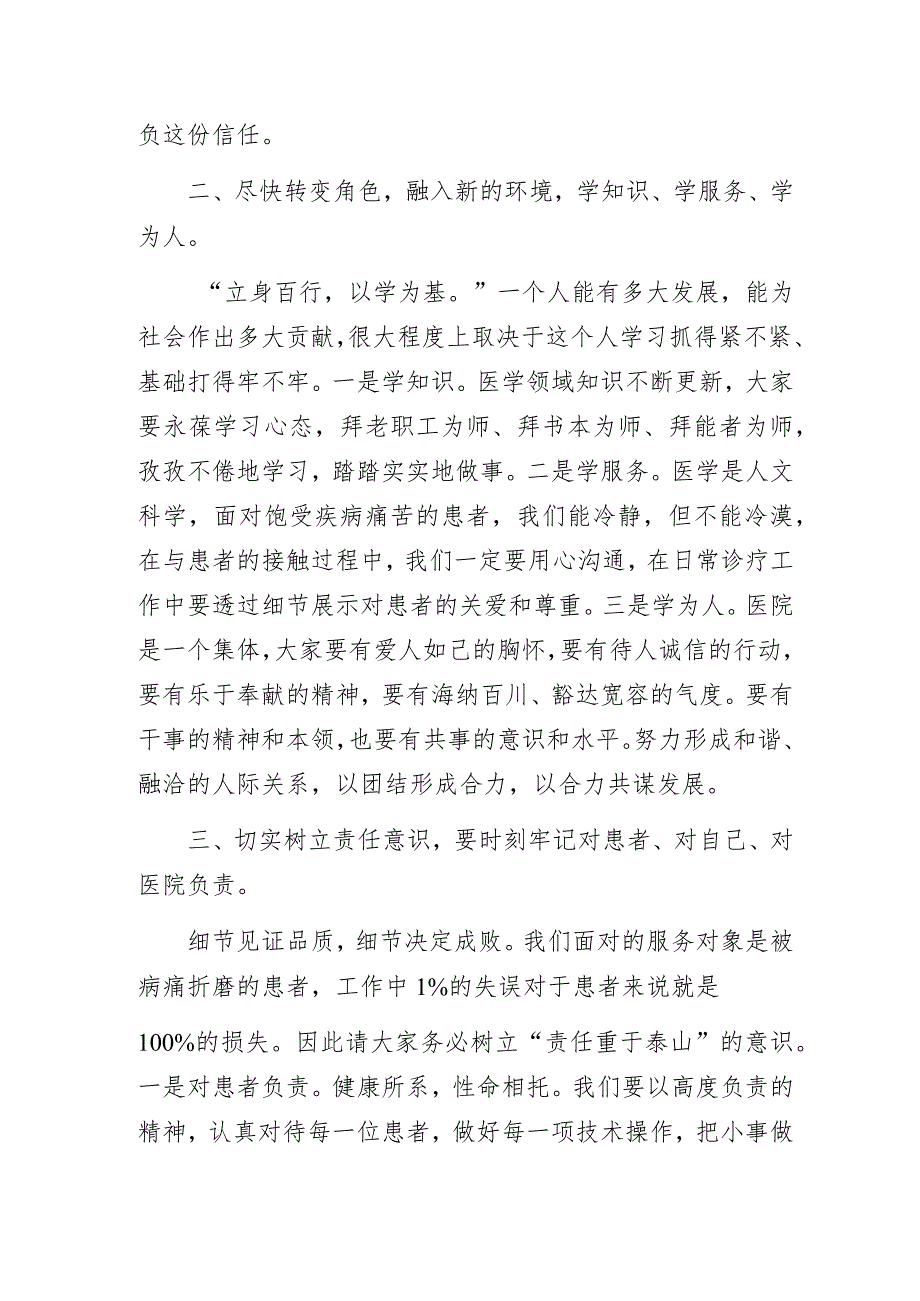 负这份信任。
二、尽快转变角色，融入新的环境，学知识、学服务、学
为人。
“立身百行，以学为基。”一个人能有多大发展，能为
社会作出多大贡献，很大程度上取决于这个人学习抓得紧不紧、
基础打得牢不牢。一是学知识。医学领域知识不断更新，大家
要永葆学习心态，拜老职工为师、拜书本为师、拜能者为师，
孜孜不倦地学习，踏踏实实地做事。二是学服务。医学是人文
科学，面对饱受疾病痛苦的患者，我们能冷静，但不能冷漠，
在与患者的接触过程中，我们一定要用心沟通，在日常诊疗工
作中要透过细节展示对患者的关爱和尊重。三是学为人。医院
是一个集体，大家要有爱人如己的胸怀，要有待人诚信的行动，
要有乐于奉献的精神，要有海纳百川、豁达宽容的气度。要有
干事的精神和本领，也要有共事的意识和水平。努力形成和谐、
融洽的人际关系，以团结形成合力，以合力共谋发展。
三、切实树立责任意识，要时刻牢记对患者、对自己、对
医院负责。
细节见证品质，细节决定成败。我们面对的服务对象是被
病痛折磨的患者，工作中1%的失误对于患者来说就是
100%的损失。因此请大家务必树立“责任重于泰山”的意识。
一是对患者负责。健康所系，性命相托。我们要以高度负责的
精神，认真对待每一位患者，做好每一项技术操作，把小事做